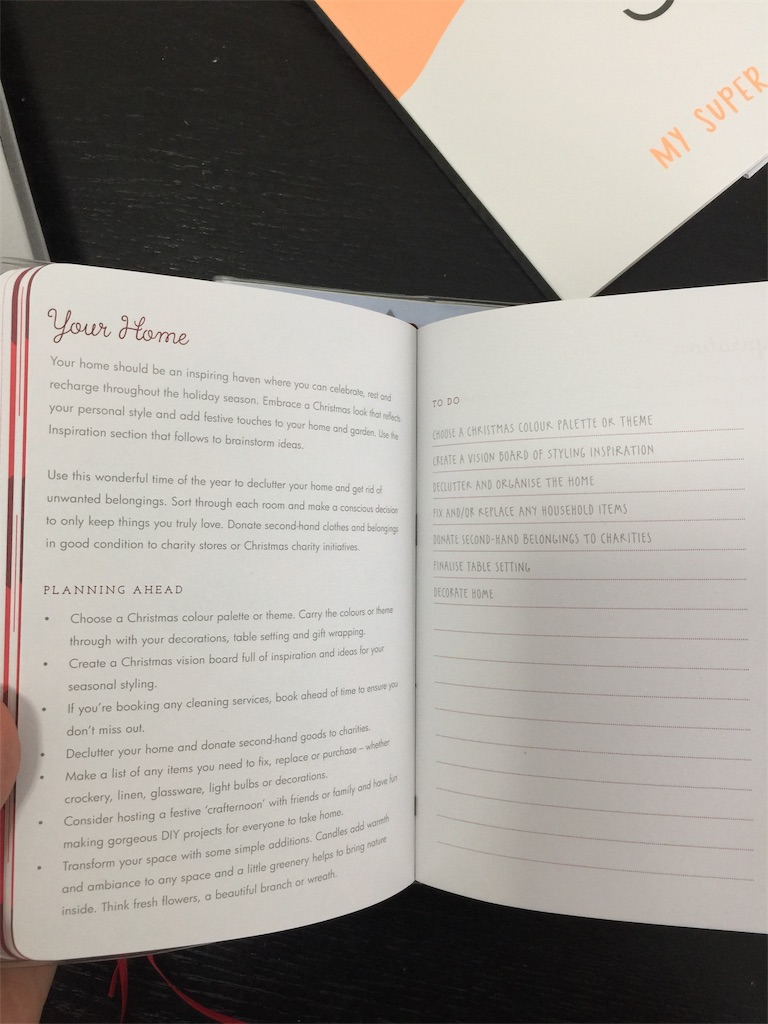 MY SUPER
Your Home
Your home should be an inspiring haven where you can celebrate, rest and
recharge throughout the holiday season. Embrace a Christmas look that reflects
your personal style and add festive touches to your home and garden. Use the
Inspiration section that follows to brainstorm ideas.
Use this wonderful time of the year to declutter your home and get rid of
unwanted belongings. Sort through each room and make a conscious decision
to only keep things you truly love. Donate second-hand clothes and belongings
in good condition to charity stores or Christmas charity initiatives.
PLANNING AHEAD
• Choose a Christmas colour palette or theme. Carry the colours or theme
through with your decorations, table setting and gift wrapping.
• Create a Christmas vision board full of inspiration and ideas for your
seasonal styling.
• If you're booking any cleaning services, book ahead of time to ensure you
don't miss out.
• Declutter your home and donate second-hand goods to charities.
• Make a list of any items you need to fix, replace or purchase – whether
crockery, linen, glassware, light bulbs or decorations.
• Consider hosting a festive 'crafternoon' with friends or family and have fun
making gorgeous DIY projects for everyone to take home.
• Transform your space with some simple additions. Candles add warmth
and ambiance to any space and a little greenery helps to bring nature
inside. Think fresh flowers, a beautiful branch or wreath.
TO DO
CHOOSE A CHRISTMAS COLOUR PALETTE OR THEME
CREATE A VISION BOARD OF STYLING INSPIRATION
DECLUTTER AND ORGANISE THE HOME
FIX AND/OR REPLACE ANY HOUSEHOLD ITEMS
DONATE SECOND-HAND BELONGINGS TO CHARITIES
FINALISE TABLE SETTING
DECORATE HOME